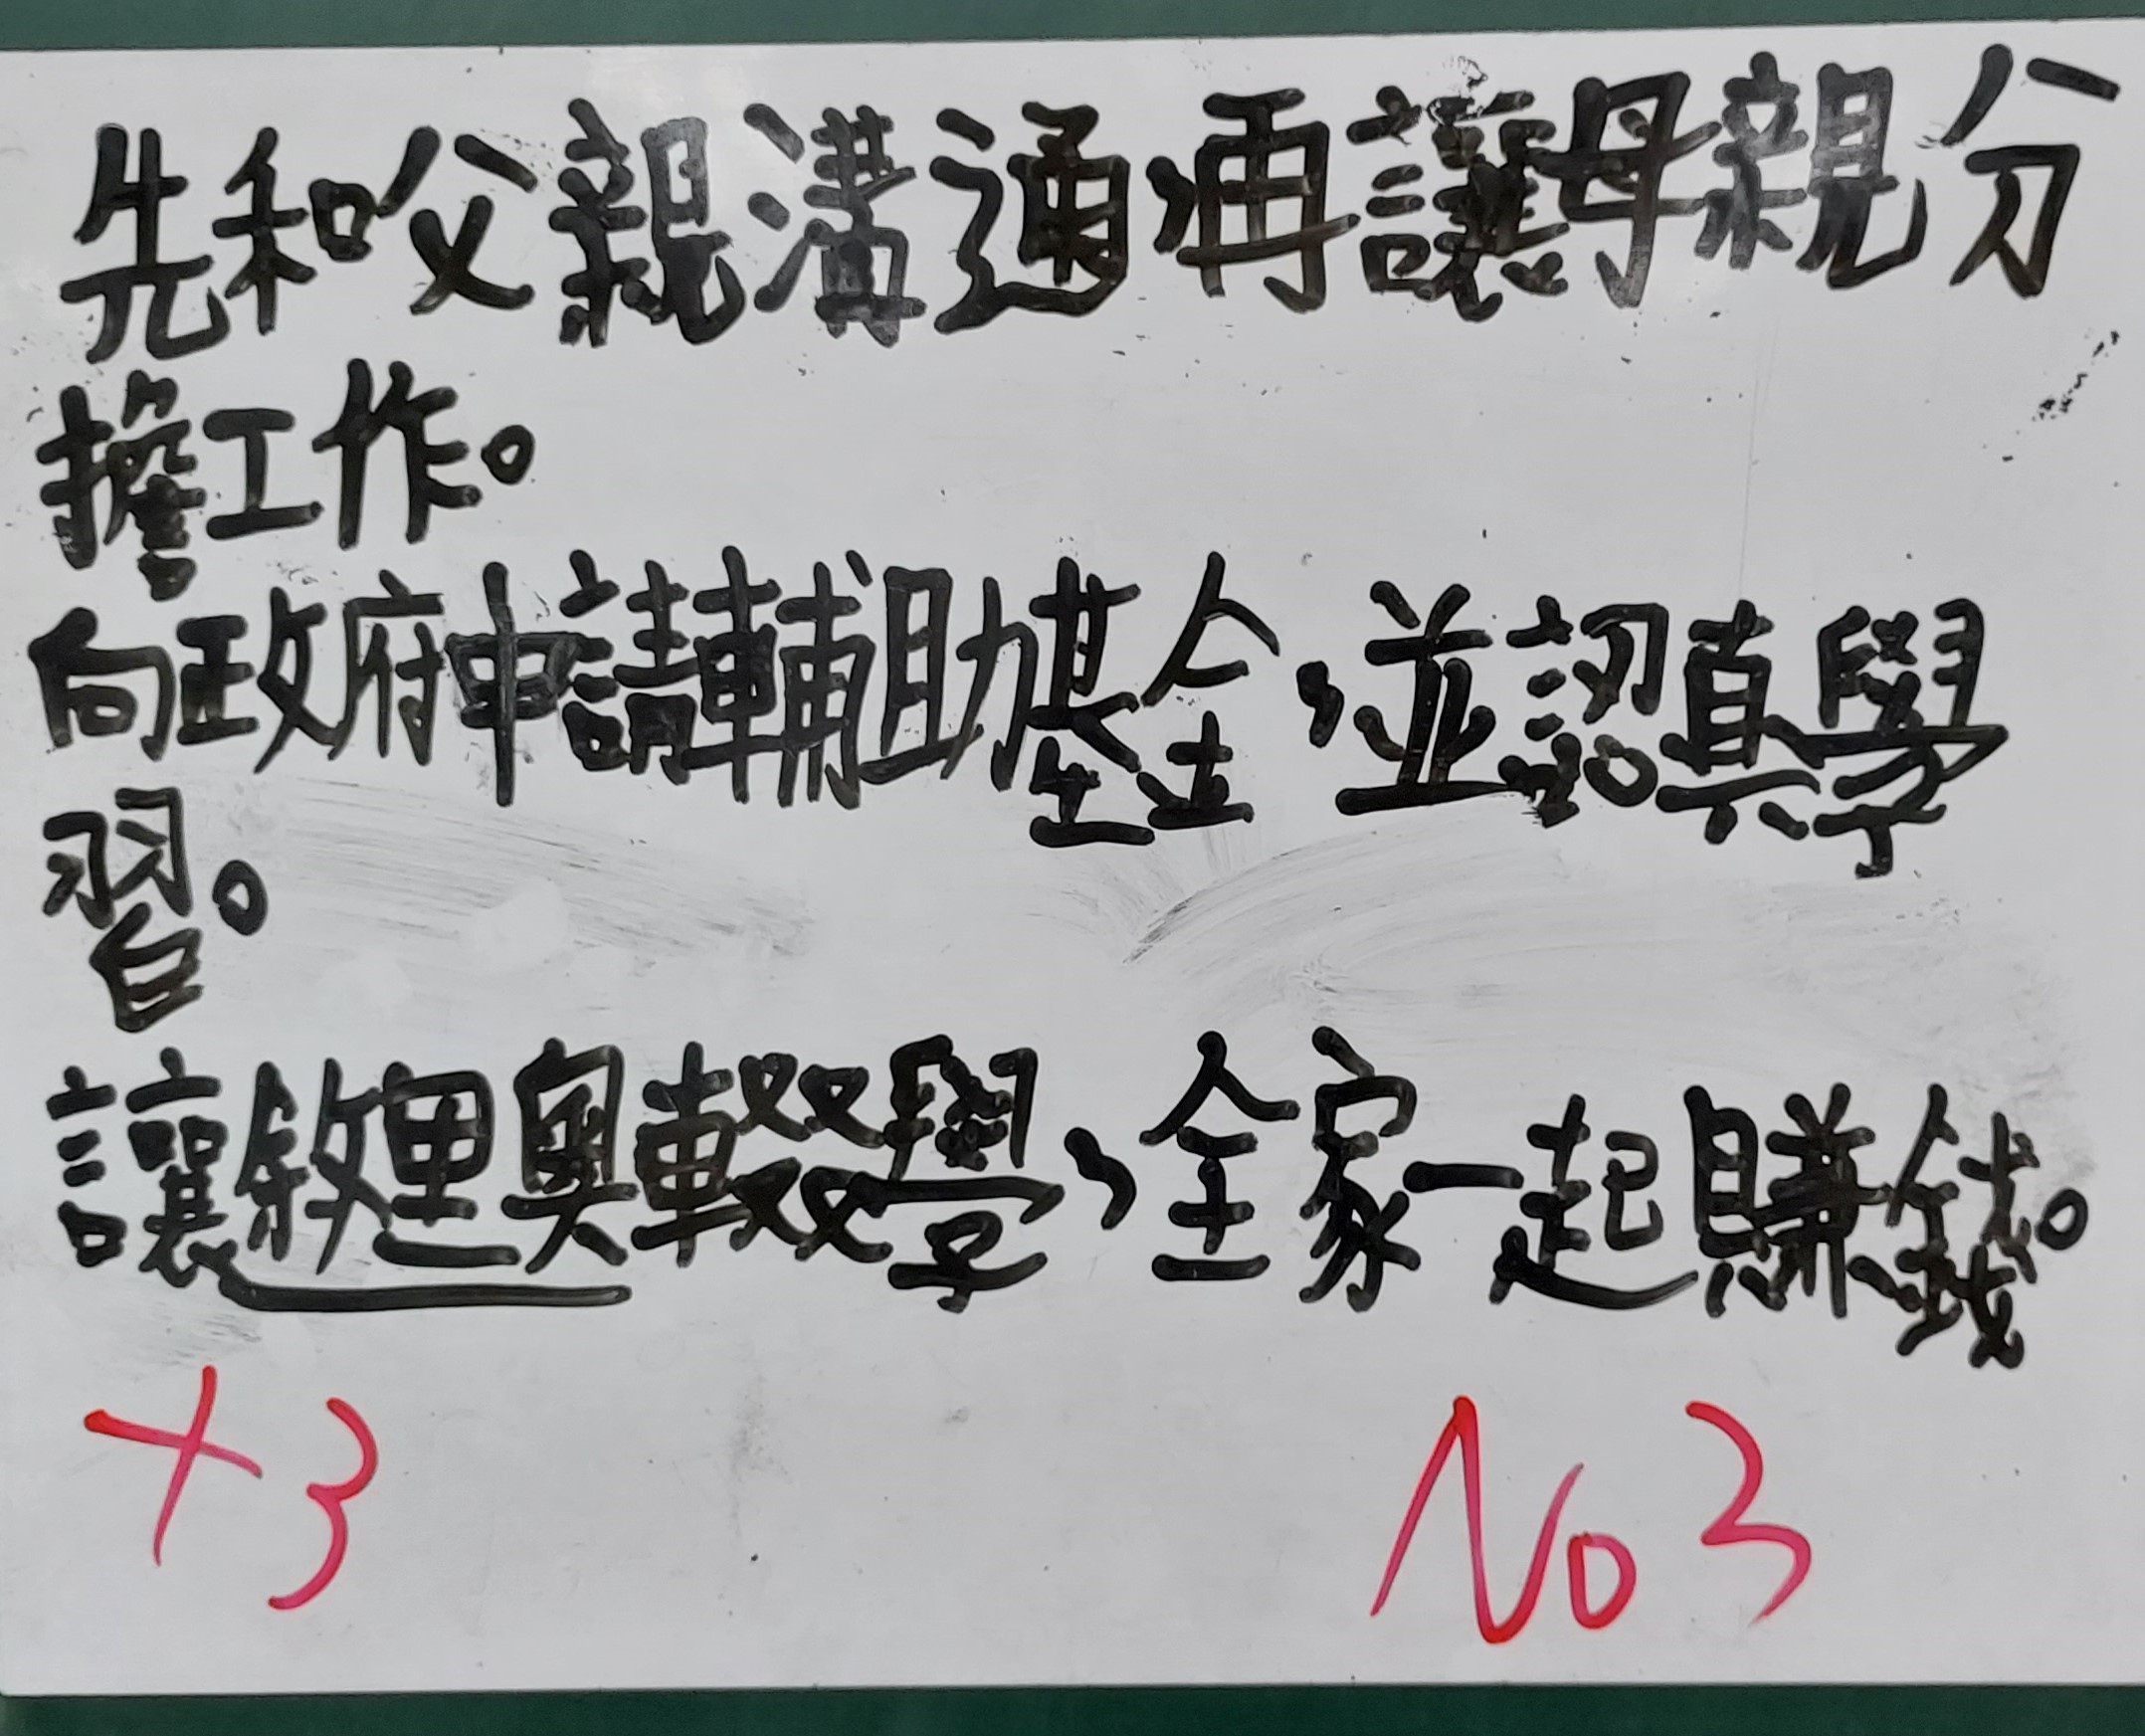 先和父親溝通,再讓母親分
擔工作。
向政府申請輔助基金,並認真學
習。
讓敘里奧輟學,全家一起賺錢。
+3
No 3